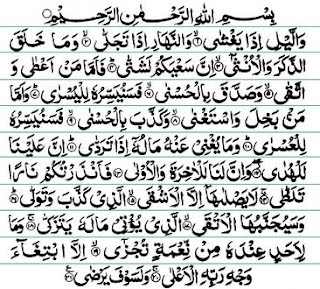 بِسْمِ اللهِ الرَّحْمٰنِ الرَّحِيْمِ
وَالَّيْلِ اِذَا يَغْشٰىۙ وَالنَّهَارِ اِذَا تَجَلّٰىۙ وَمَا خَلَقَ
الذَّكَرَ وَالْاُنْثٰىۤۙ اِنَّ سَعْيَكُمْ لَشَتّٰىؕ فَاَمَّا مَنْ اَعْطٰى وَ
اتَّقٰىۙ وَصَدَّقَ بِالْحُسْنٰىۙ فَسَنُيَسِّرُهٗ لِلْيُسْرٰىؕ وَاَمَّا
مَنْۢ بَخِلَ وَاسْتَغْنٰىۙ وَكَذَّبَ بِالْحُسْنٰىۙ فَسَنُيَسِّرُهٗ
لِلْعُسْرٰىؕ وَمَا يُغْنِيْ عَنْهُ مَالُهٗۤ اِذَا تَرَدّٰىؕ اِنَّ عَلَيْنَا
لَلْهُدٰىۖ وَاِنَّ لَنَا لَلْاٰخِرَةَ وَالْاُوْلٰى فَاَنْذَرْتُكُمْ نَارًا
تَلَظّٰىۚ لَا يَصْلٰىهَاۤ اِلَّا الْاَشْقَىۙ الَّذِيْ كَذَّبَ وَتَوَلّٰىؕ
وَسَيُجَنَّبُهَا الْاَتْقَىۙ الَّذِيْ يُؤْتِيْ مَالَهٗ يَتَزَكّٰىۚ وَمَا
لِاَحَدٍ عِنْدَهٗ مِنْ نِّعْمَةٍ تُجْزٰىۤۙ اِلَّا ابْتِغَآءَ
وَجْهِ رَبِّهِ الْاَعْلٰىۚ وَلَسَوْفَ يَرْضٰى